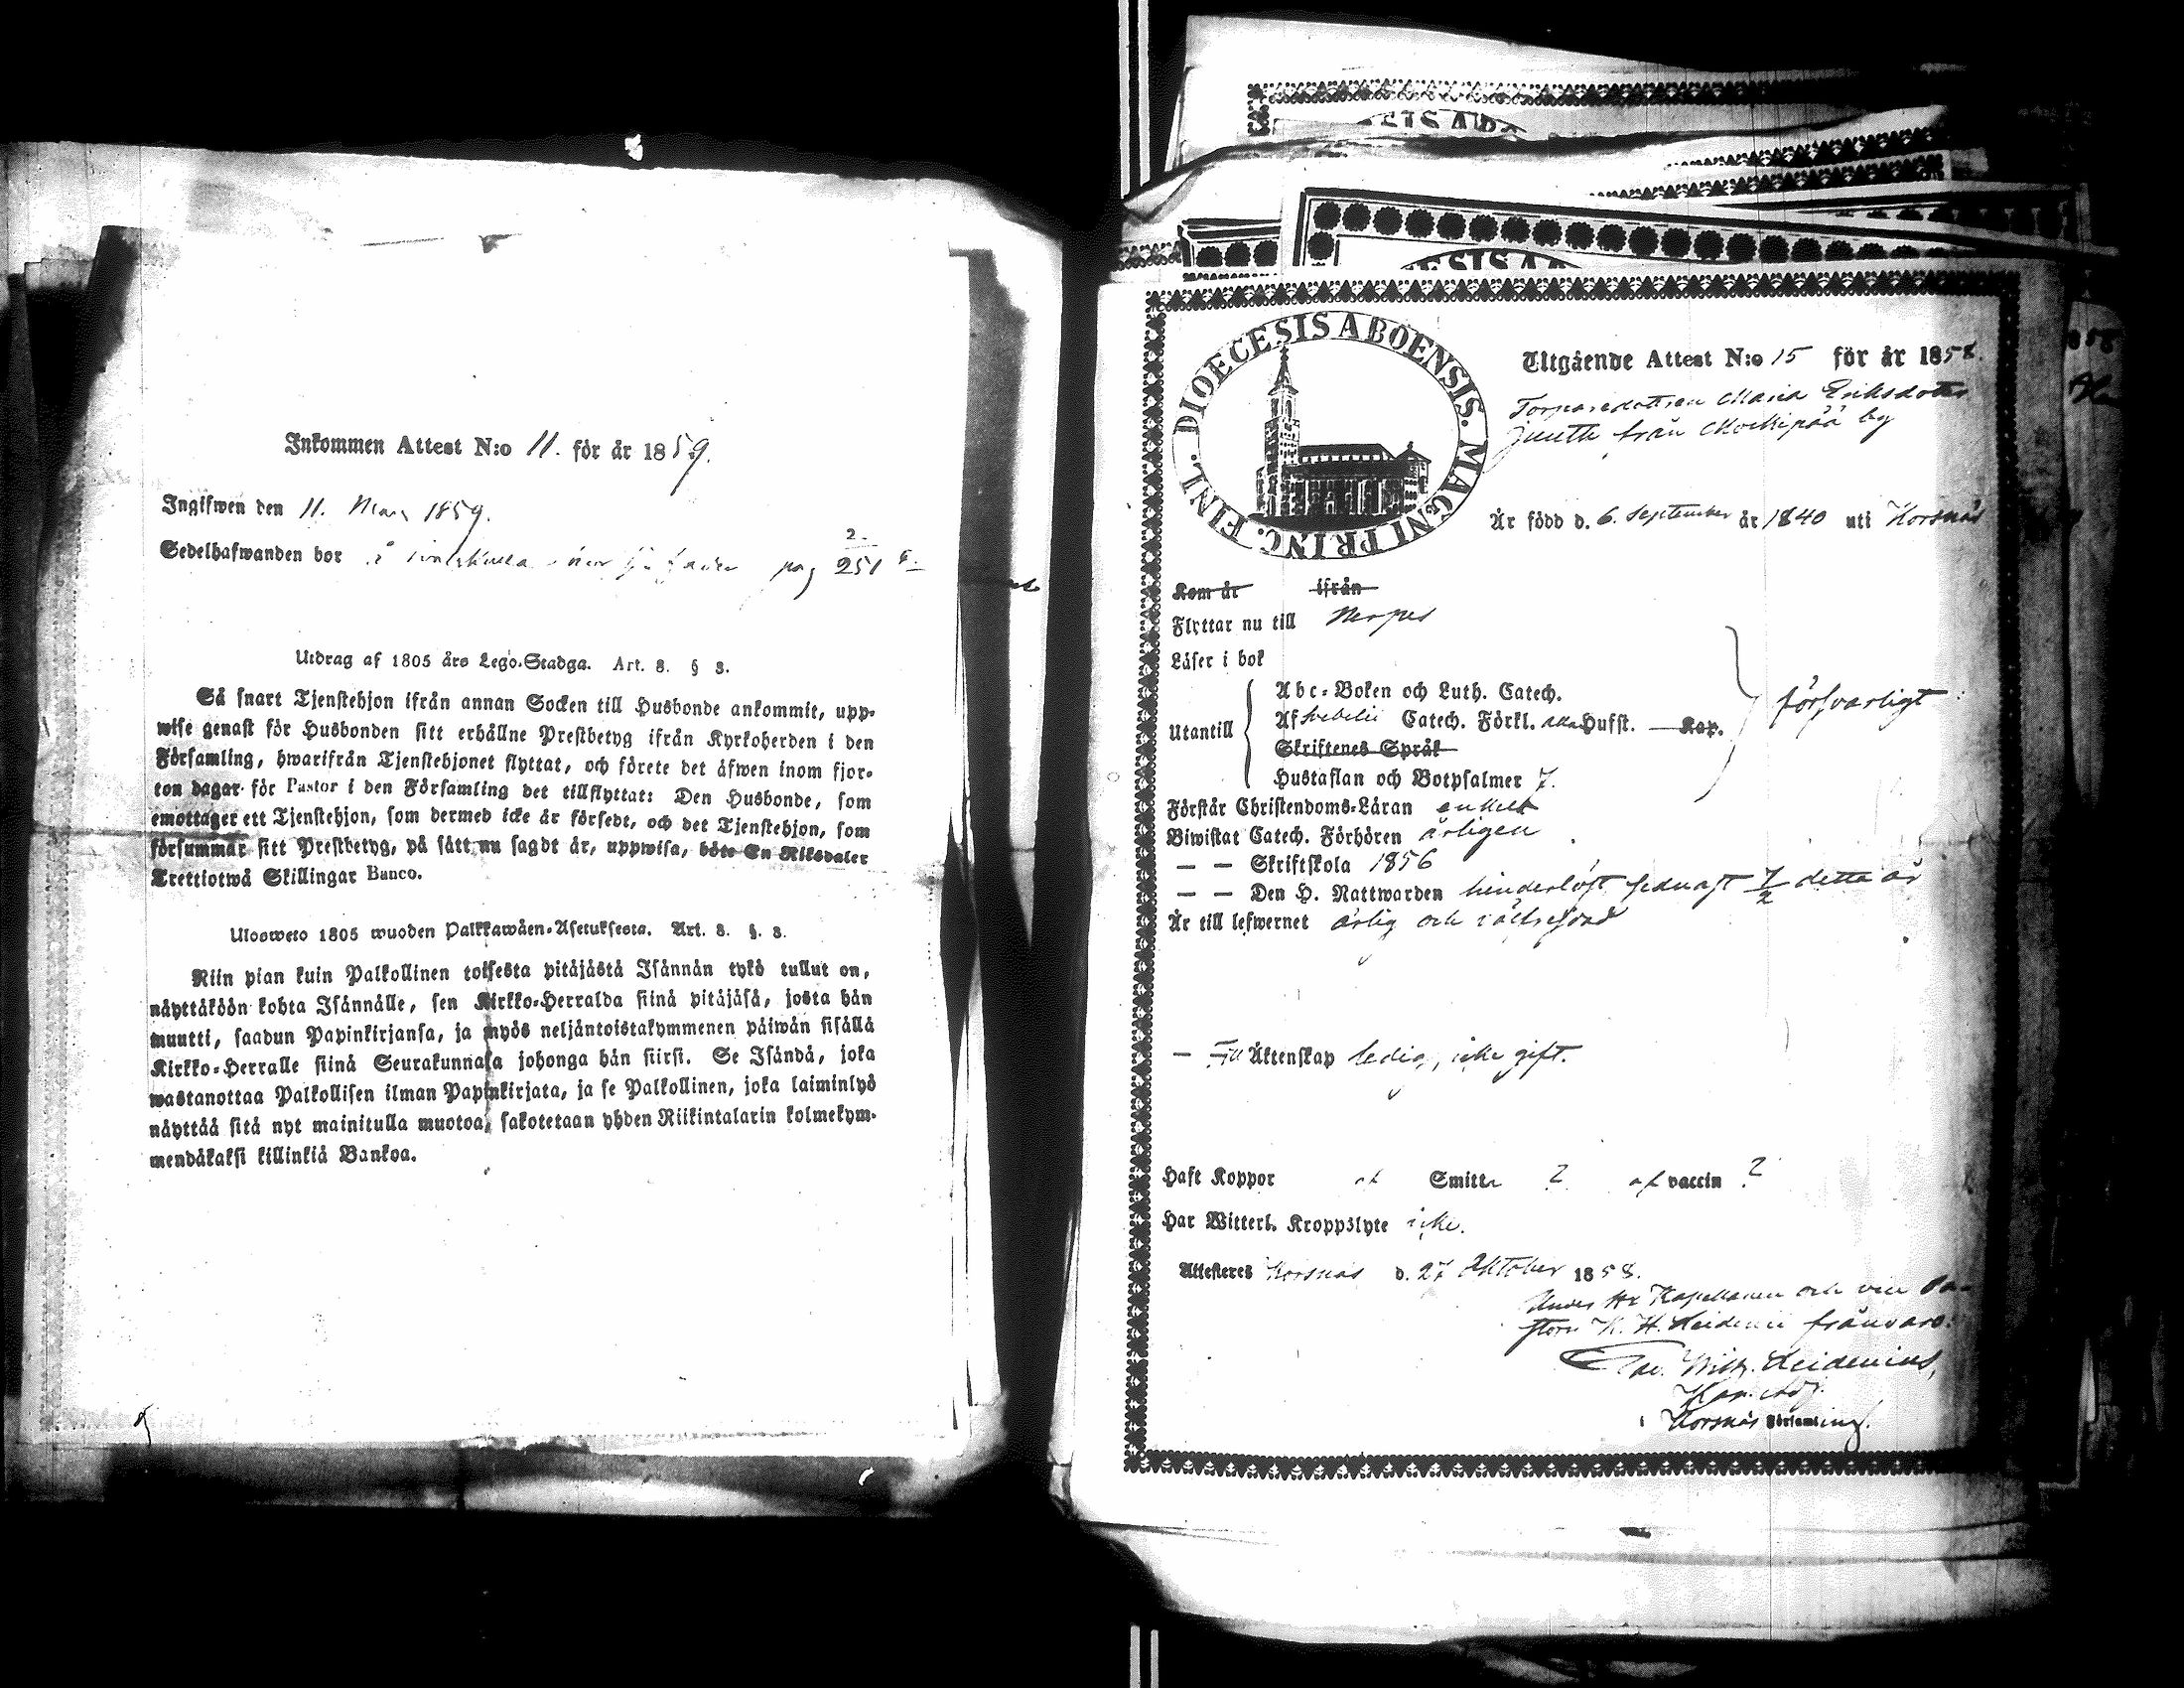 Inkommen Attest N:o 11. för år 1859.
Ingifwen den 11. Mars 1859.
Sedelhafwanden bor å pag 251
2.
Utdrag af 1805 års Lego-Stadga. Art. 8. § 3.
Så snart Tjenstehjon ifrån annan Socken till Husbonde ankommit, upp-
wise genast för Husbonden sitt erhållne Prestbetyg ifrån Kyrkoherden i den
Församling, hwarifrån Tjenstehjonet flyttat, och förete det äfwen inom fjor-
ton dagar för Pastor i den Församling det tillflyttat: Den Husbonde, som
emottager ett Tjenstehjon, som dermed icke är försedt, och det Tjenstehjon, som
försummar sitt Prestbetyg, på sätt nu sagdt är, uppwisa, böte En Riksdaler
Trettiotwå Skillingar Banco.
Ulosweto 1805 wuoden Palkkawäen-Asetuksesta. Art. 8. §. 3.
Niin pian kuin Palkollinen toisesta pitäjästä Isännän tykö tullut on,
näyttäköön kohta Isännälle, sen Kirkko-Herralda siinä pitäjäsä, josta hän
muutti, saadun Papinkirjansa, ja myös neljäntoistakymmenen päiwän sisällä
Kirkko-Herralle siinä Seurakunnasa johonga hän siirsi. Se Isändä, joka
wastanottaa Palkollisen ilman Papinkirjata, ja se Palkollinen, joka laiminlyö
näyttää sitä nyt mainitulla muotoa, sakotetaan yhden Riikintalarin kolmekym-
mendäkaksi killinkiä Bankoa.
DIOECESIS ABOENSIS. MAGNI PRINC. FINL.
Utgående Attest N:o 15 för år 1858.
Torparedottren Maria Eriksdotter
Juuth från Molpää by
Är född d. 6. September år 1840 uti Korsnäs
Kom år ifrån
Flyttar nu till Nerpes
Läser i bok
Utantill
Abc-Boken och Luth. Catech.
Af Svebelii Catech. Förkl. alla Hufst. Kap.
Skriftenes Språk
Hustaflan och Botpsalmer 7.
försvarligt
Förstår Christendoms-Läran enkelt
Biwistat Catech. Förhören årligen
— — Skriftskola 1856
— — Den H. Nattwarden hinderlöst sednast 7/2 detta år
Är till lefwernet ärlig och
— Till Äktenskap ledig, icke gift.
Haft Koppor af Smitta ? af vaccin ?
Har Witterl. Kroppslyte icke.
Attesteras Korsnäs d. 27 Oktober 1858.
Under Hr Kapellanen och vice Pa-
storn K. H. Heidenii frånvaro.
Wilh. Heidenius,
Kap. Adj.
i Korsnäs Församling.